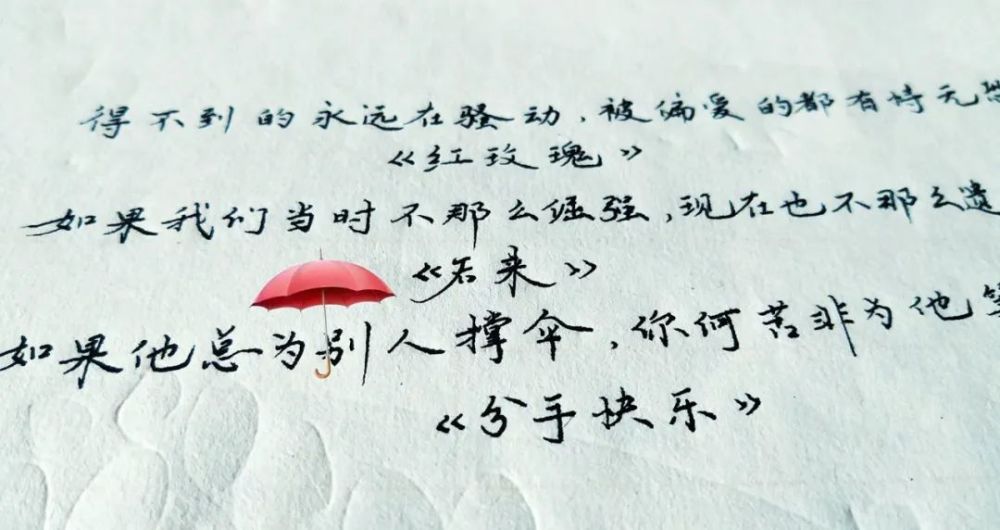 得不到的永远在骚动,被偏爱的都有恃无恐
《红玫瑰》
如果我们当时不那么倔强,现在也不那么遗
《后来》
如果他总为别人撑伞,你何苦非为他等
《分手快乐》